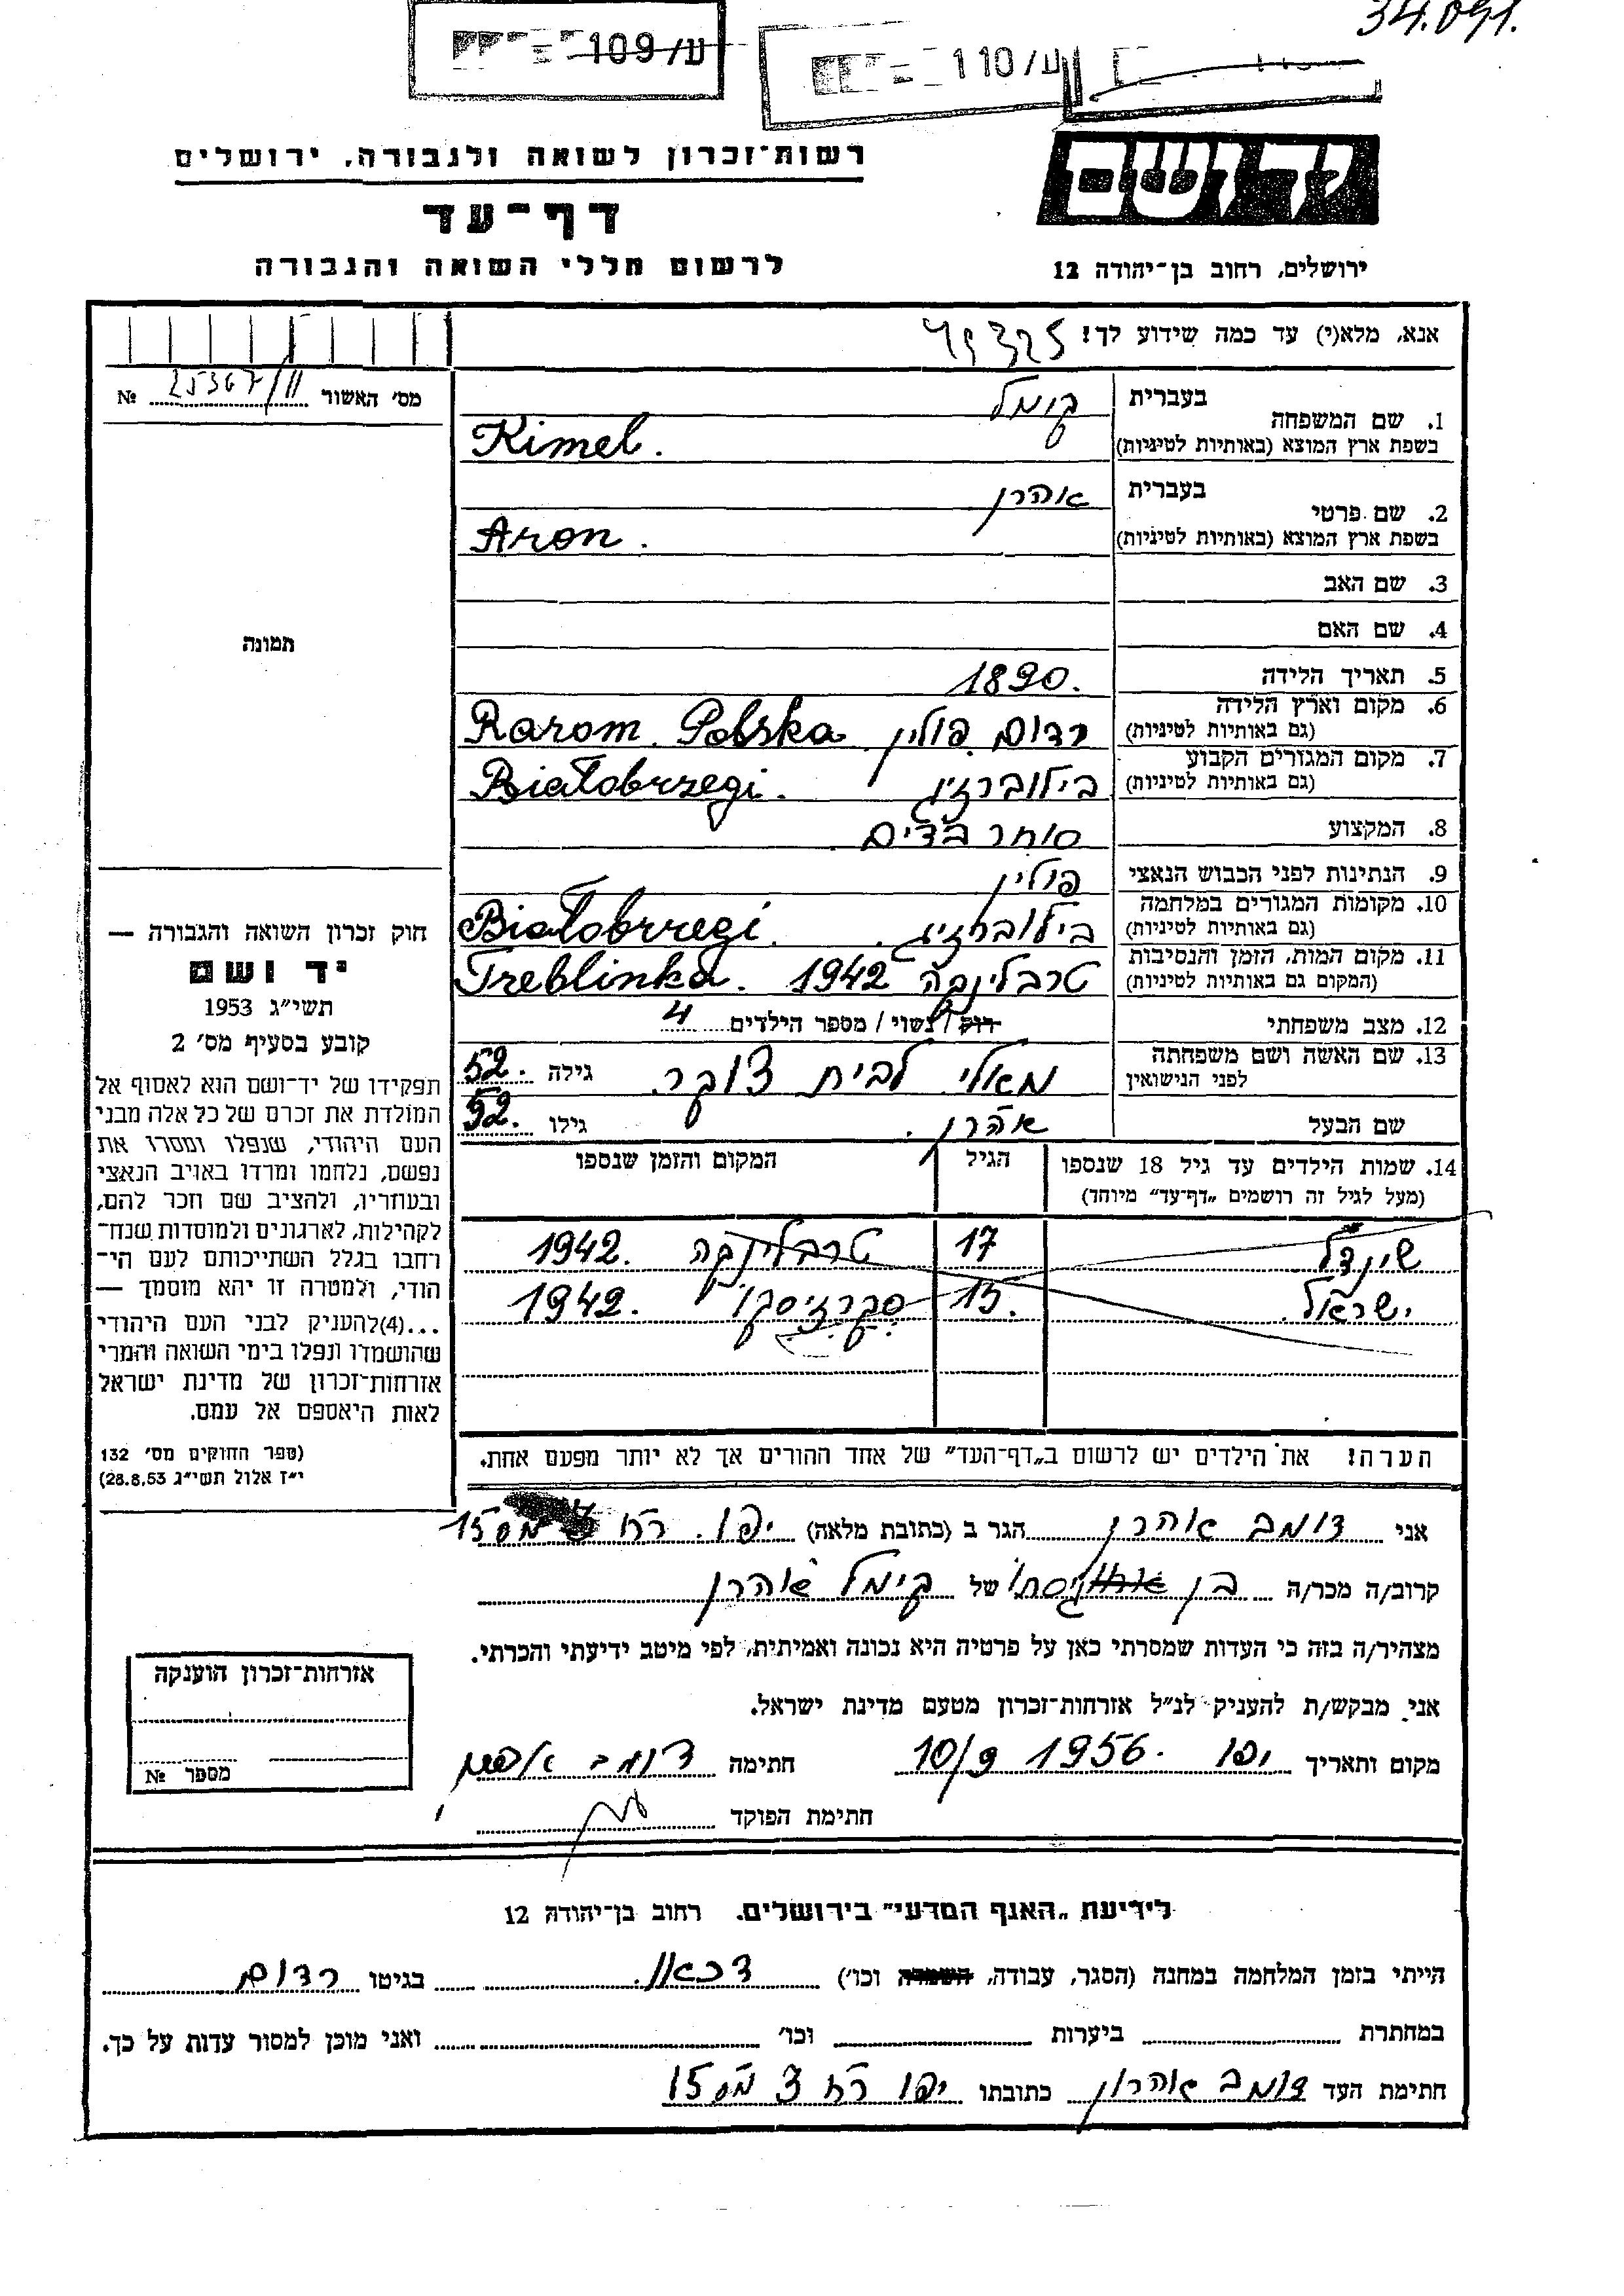 34.091.
ע/109
ע/110
יד ושם
רשות־זכרון לשואה ולגבורה, ירושלים
דף־עד
ירושלים, רחוב בן־יהודה 12
לרשום חללי השואה והגבורה
אנא, מלא(י) עד כמה שידוע לך!
מס׳ האשור 25367/II №
1. שם המשפחה
בעברית קימל
בשפת ארץ המוצא (באותיות לטיניות) Kimel.
2. שם פרטי
בעברית אהרן
בשפת ארץ המוצא (באותיות לטיניות) Aron.
3. שם האב
4. שם האם
תמונה
5. תאריך הלידה 1890.
6. מקום וארץ הלידה
(גם באותיות לטיניות) רדום. פולין Rarom. Polska
7. מקום המגורים הקבוע
(גם באותיות לטיניות) בילוברזיג Białobrzegi.
8. המקצוע סוחר בדים
9. הנתינות לפני הכבוש הנאצי פולין
10. מקומות המגורים במלחמה
(גם באותיות לטיניות) בילוברזיג. Białobrzegi.
11. מקום המות, הזמן והנסיבות
(המקום גם באותיות לטיניות) טרבלינקה 1942 Treblinka.
12. מצב משפחתי רוק / נשוי / מספר הילדים 4
13. שם האשה ושם משפחתה
לפני הנישואין מאלי לבית צוקר. גילה 52.
שם הבעל אהרן. גילו 52.
14. שמות הילדים עד גיל 18 שנספו
(מעל לגיל זה רושמים „דף־עד” מיוחד)
הגיל
המקום והזמן שנספו
שינדל 17 טרבלינקה 1942.
ישראל. 15. 1942.
הערה! את הילדים יש לרשום ב„דף־העד” של אחד ההורים אך לא יותר מפעם אחת.
חוק זכרון השואה והגבורה —
יד ושם
תשי״ג 1953
קובע בסעיף מס׳ 2
תפקידו של יד־ושם הוא לאסוף אל
המולדת את זכרם של כל אלה מבני
העם היהודי, שנפלו ומסרו את
נפשם, נלחמו ומרדו באויב הנאצי
ובעוזריו, ולהציב שם וזכר להם,
לקהילות, לארגונים ולמוסדות שנח־
רחבו בגלל השתייכותם לעם הי־
הודי, ולמטרה זו יהא מוסמך —
...(4)להעניק לבני העם היהודי
שהושמדו ונפלו בימי השואה והמרי
אזרחות־זכרון של מדינת ישראל
לאות היאספם אל עמם.
(ספר החוקים מס׳ 132
י״ז אלול תשי״ג 28.8.53)
אני דומב אהרן הגר ב (כתובת מלאה) יפו. רח 3 מס 15
קרוב/ה מכר/ה בן גיסתו של קימל אהרן
מצהיר/ה בזה כי העדות שמסרתי כאן על פרטיה היא נכונה ואמיתית, לפי מיטב ידיעתי והכרתי.
אני מבקש/ת להעניק לנ״ל אזרחות־זכרון מטעם מדינת ישראל.
מקום ותאריך יפו 10/9 1956. חתימה דומב אהרן
חתימת הפוקד
אזרחות־זכרון הוענקה
מספר №
לידיעת „האגף המדעי” בירושלים. רחוב בן־יהודה 12
הייתי בזמן המלחמה במחנה (הסגר, עבודה, השמדה וכו׳) דכאו. בגיטו רדום
במחתרת ביערות וכו׳ ואני מוכן למסור עדות על כך.
חתימת העד דומב אהרון כתובתו יפו רח 3 מס 15